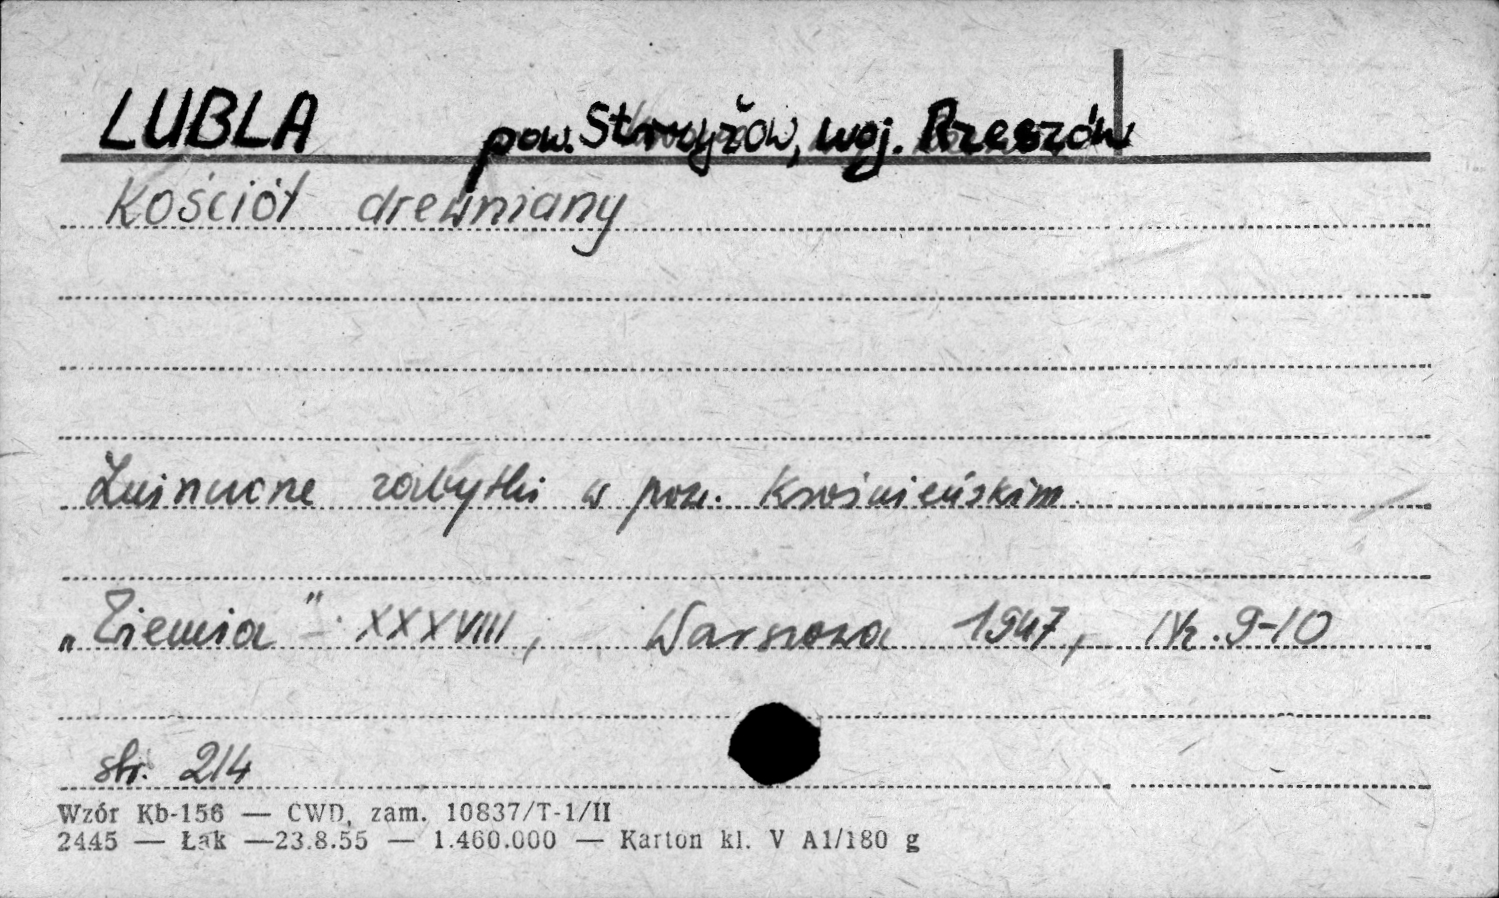 LUBLA pow. Strzyżów, woj. Rzeszów
Kościół drewniany
zabytki w pow. Krośnieńskim
„Ziemia" XXXVIII, Warszawa 1947, Nr. 9-10
str. 214
Wzór Kb-156 — CWD, zam. 10837/T-1/II
2445 — Łak —23.8.55 — 1.460.000 — Karton kl. V A1/180 g